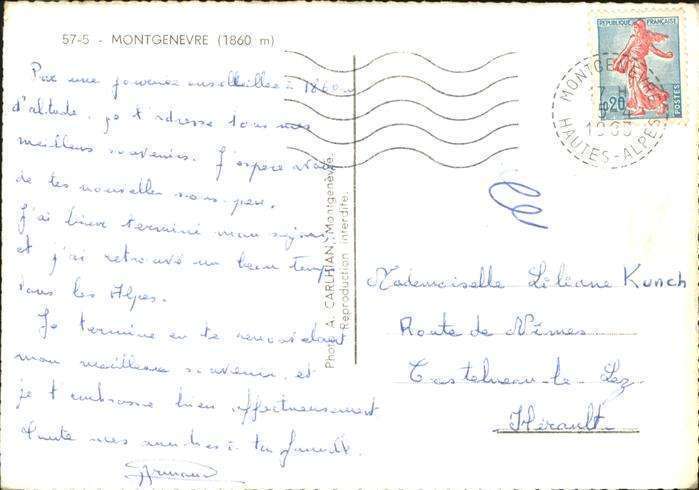 57-5 - MONTGENEVRE (1860 m)
Par une journée ensoleillée à 1860 m
d'altitude, je t'adresse tous mes
meilleurs souvenirs. J'espère avoir
de tes nouvelles sous peu.
J'ai bien terminé mon séjour
et j'ai retrouvé un beau temps
dans les Alpes.
Je termine en te renouvelant
mon meilleur souvenir et
je t'embrasse bien affectueusement
toutes mes à ta famille
Photo A. CARLHIAN, Montgenèvre.
Reproduction interdite.
REPUBLIQUE FRANÇAISE
0,20
POSTES
MONTGENEVRE
17 H
HAUTES-ALPES
Mademoiselle Liliane Kunch
Route de Nîmes
Castelnau-le-Lez
Hérault